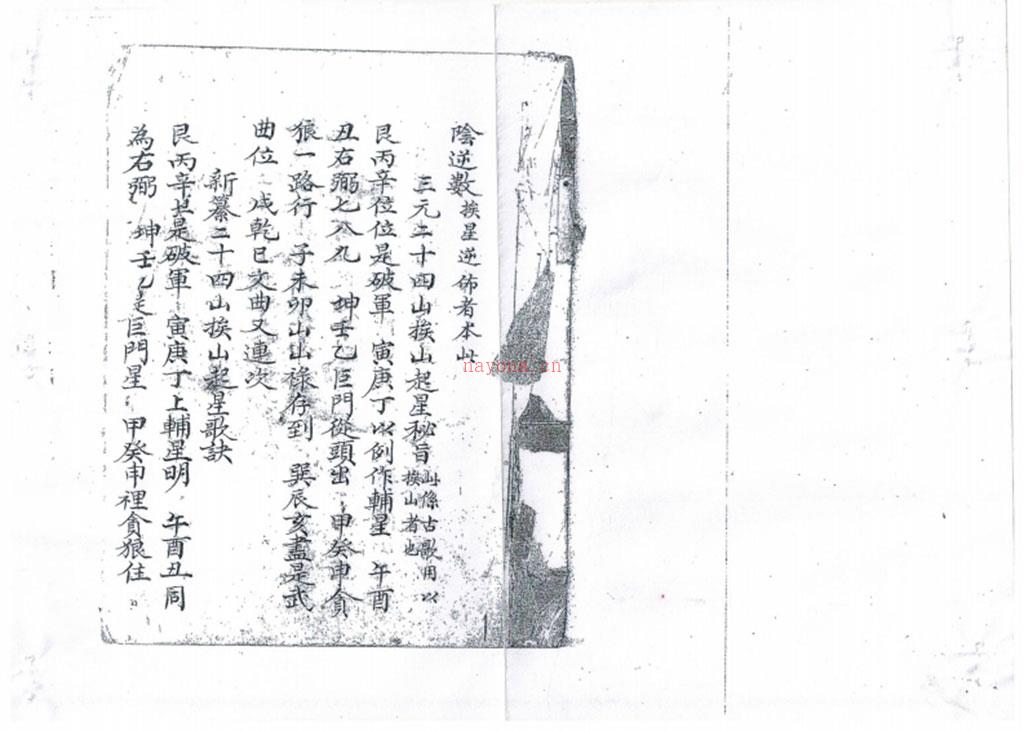 陰逆數 挨星逆佈者本此
三元二十四山挨山起星秘旨 此係古歌用以挨山者也
艮丙辛位位是破軍 寅庚丁以例作輔星 午酉
丑右弼七八九 坤壬乙巨門從頭出 甲癸申貪
狼一路行 子未卯山山祿存到 巽辰亥盡是武
曲位 戌乾巳文曲又連次
新纂二十四山挨山起星歌訣
艮丙辛 是破軍 寅庚丁上輔星明 午酉丑同
為右弼 坤壬乙是巨門星 甲癸申裡貪狼住
nayona.cn